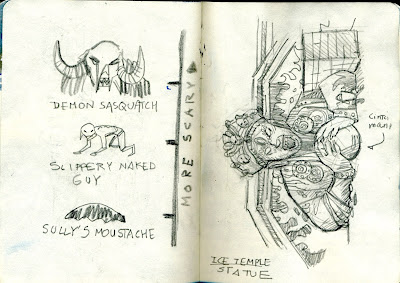 DEMON SASQUATCH
SLIPPERY NAKED
GUY
SULLY'S MOUSTACHE
MORE SCARY
Cinta
mani
ICE TEMPLE
STATUE